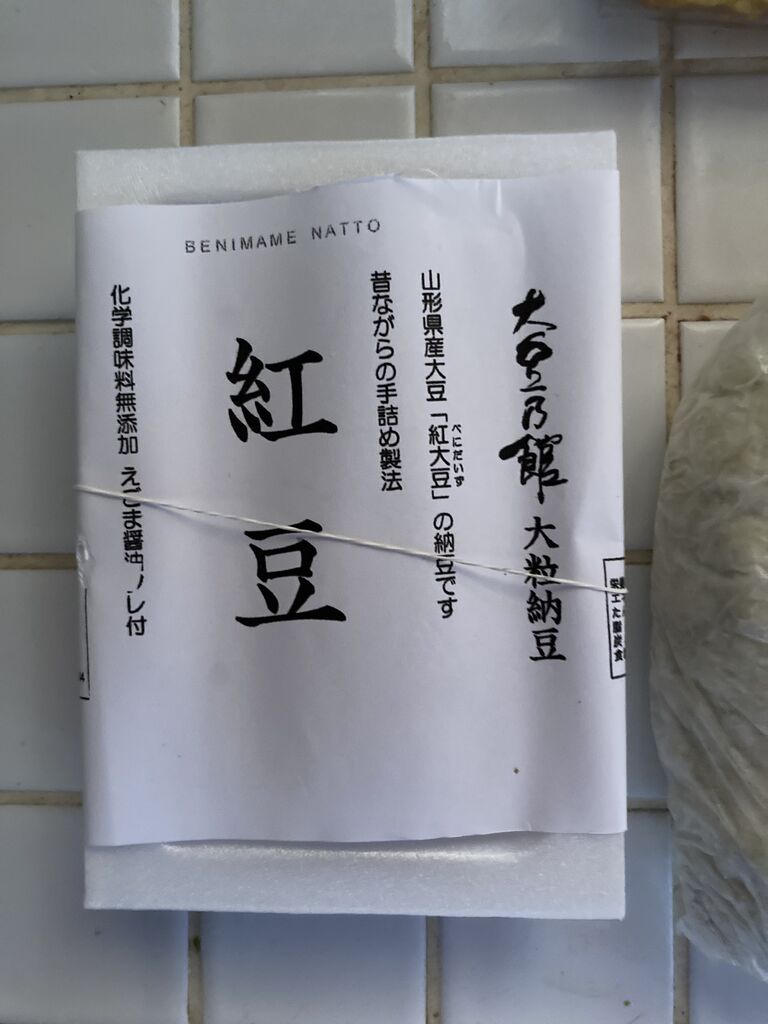 BENIMAME NATTO
大粒納豆
山形県産大豆「紅大豆」の納豆です
べにだいず
昔ながらの手詰め製法
紅豆
化学調味料無添加 えごま醤油タレ付